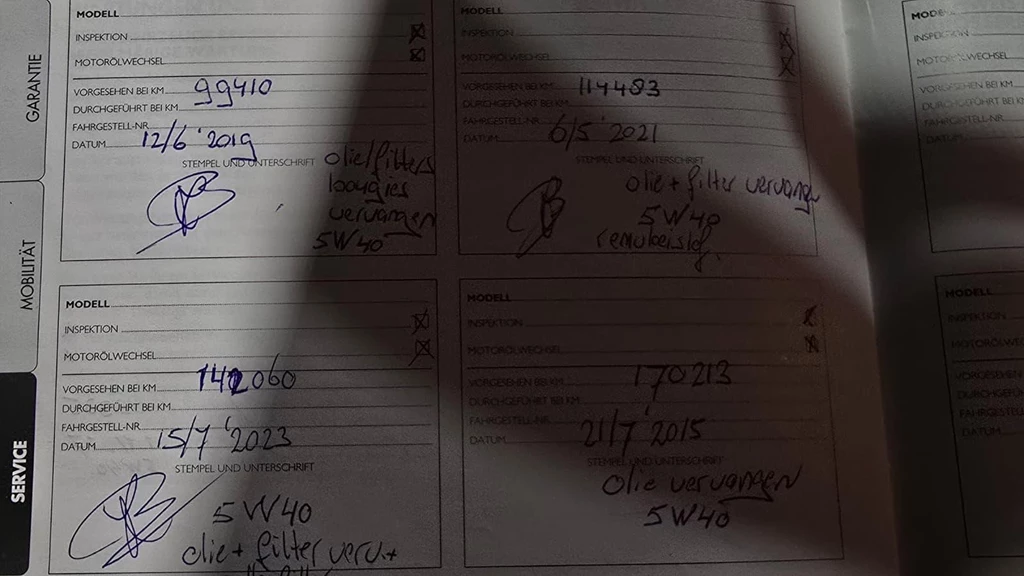 GARANTIE
MOBILITÄT
SERVICE
MODELL
INSPEKTION
MOTORÖLWECHSEL
VORGESEHEN BEI KM 99410
DURCHGEFÜHRT BEI KM
FAHRGESTELL-NR.
DATUM 12/6 '2019
STEMPEL UND UNTERSCHRIFT
olie/filters
bougies
vervangen
5W40
MODELL
INSPEKTION
MOTORÖLWECHSEL
VORGESEHEN BEI KM 114483
DURCHGEFÜHRT BEI KM
FAHRGESTELL-NR.
DATUM 6/5 '2021
STEMPEL UND UNTERSCHRIFT
olie + filter vervangen
5W40
MODELL
INSPEKTION
MOTORÖLWECHSEL
VORGESEHEN BEI KM 142060
DURCHGEFÜHRT BEI KM
FAHRGESTELL-NR.
DATUM 15/7 '2023
STEMPEL UND UNTERSCHRIFT
5W40
olie + filter
MODELL
INSPEKTION
MOTORÖLWECHSEL
VORGESEHEN BEI KM 170213
DURCHGEFÜHRT BEI KM
FAHRGESTELL-NR.
DATUM 21/7 '2015
STEMPEL UND UNTERSCHRIFT
olie vervangen
5W40
MODELL
INSPEKTION
MOTORÖLWECHSEL
VORGESEHEN
DURCHGEFÜHRT
FAHRGESTELL
DATUM
MODELL
INSPEKTION
MOTORÖLWEC
VORGESEHEN
DURCHGEFÜH
FAHRGESTELL
DATUM